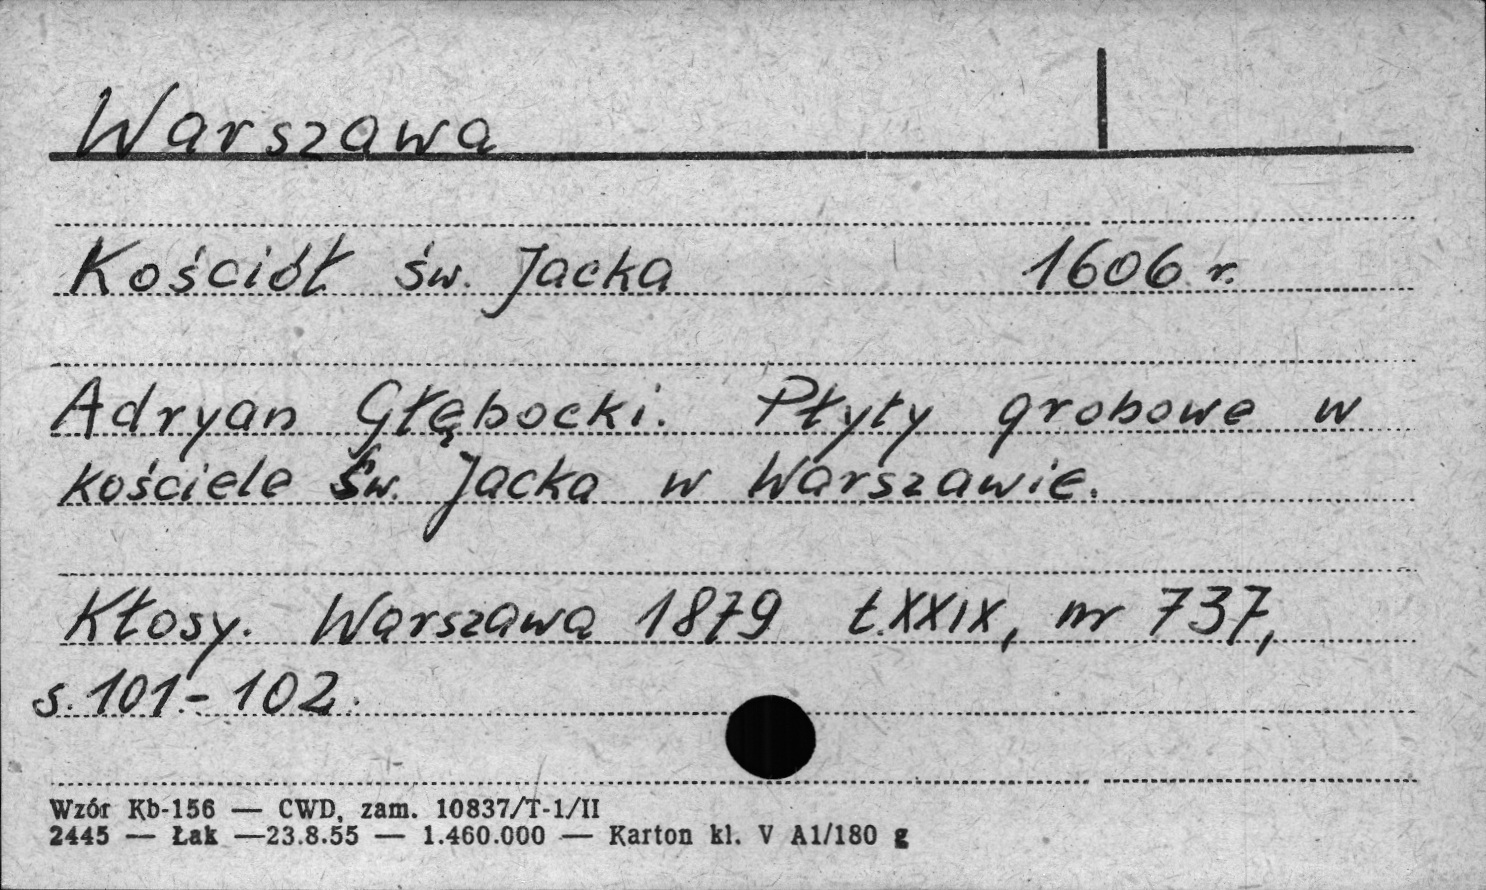 Warszawa
Kościół św. Jacka 1606 r.
Adryan Głębocki. Płyty grobowe w
kościele św. Jacka w Warszawie.
Kłosy. Warszawa 1879 t.XXIX, nr 737,
s. 101-102.
Wzór Kb-156 — CWD, zam. 10837/T-1/II
2445 — Łak —23.8.55 — 1.460.000 — Karton kl. V A1/180 g